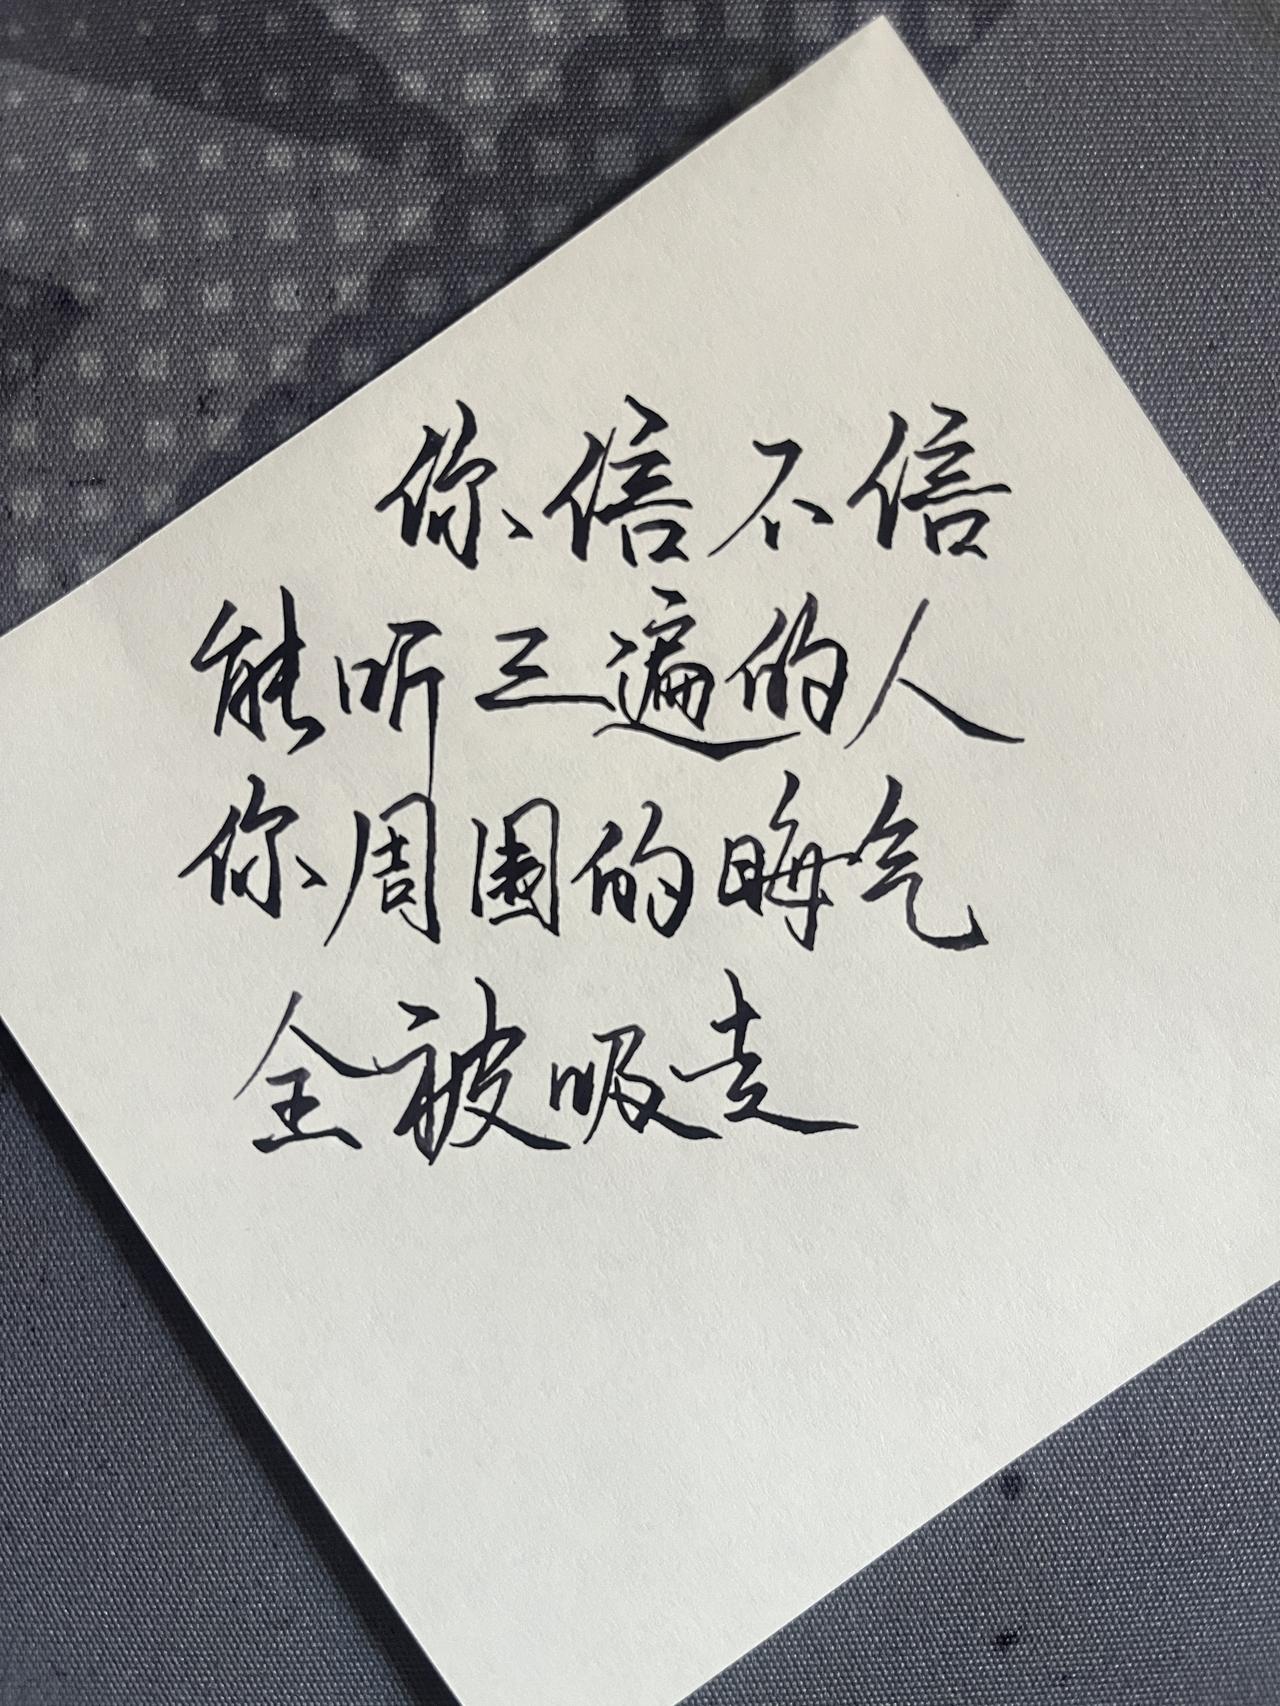 你信不信
能听三遍的人
你周围的晦气
全被吸走